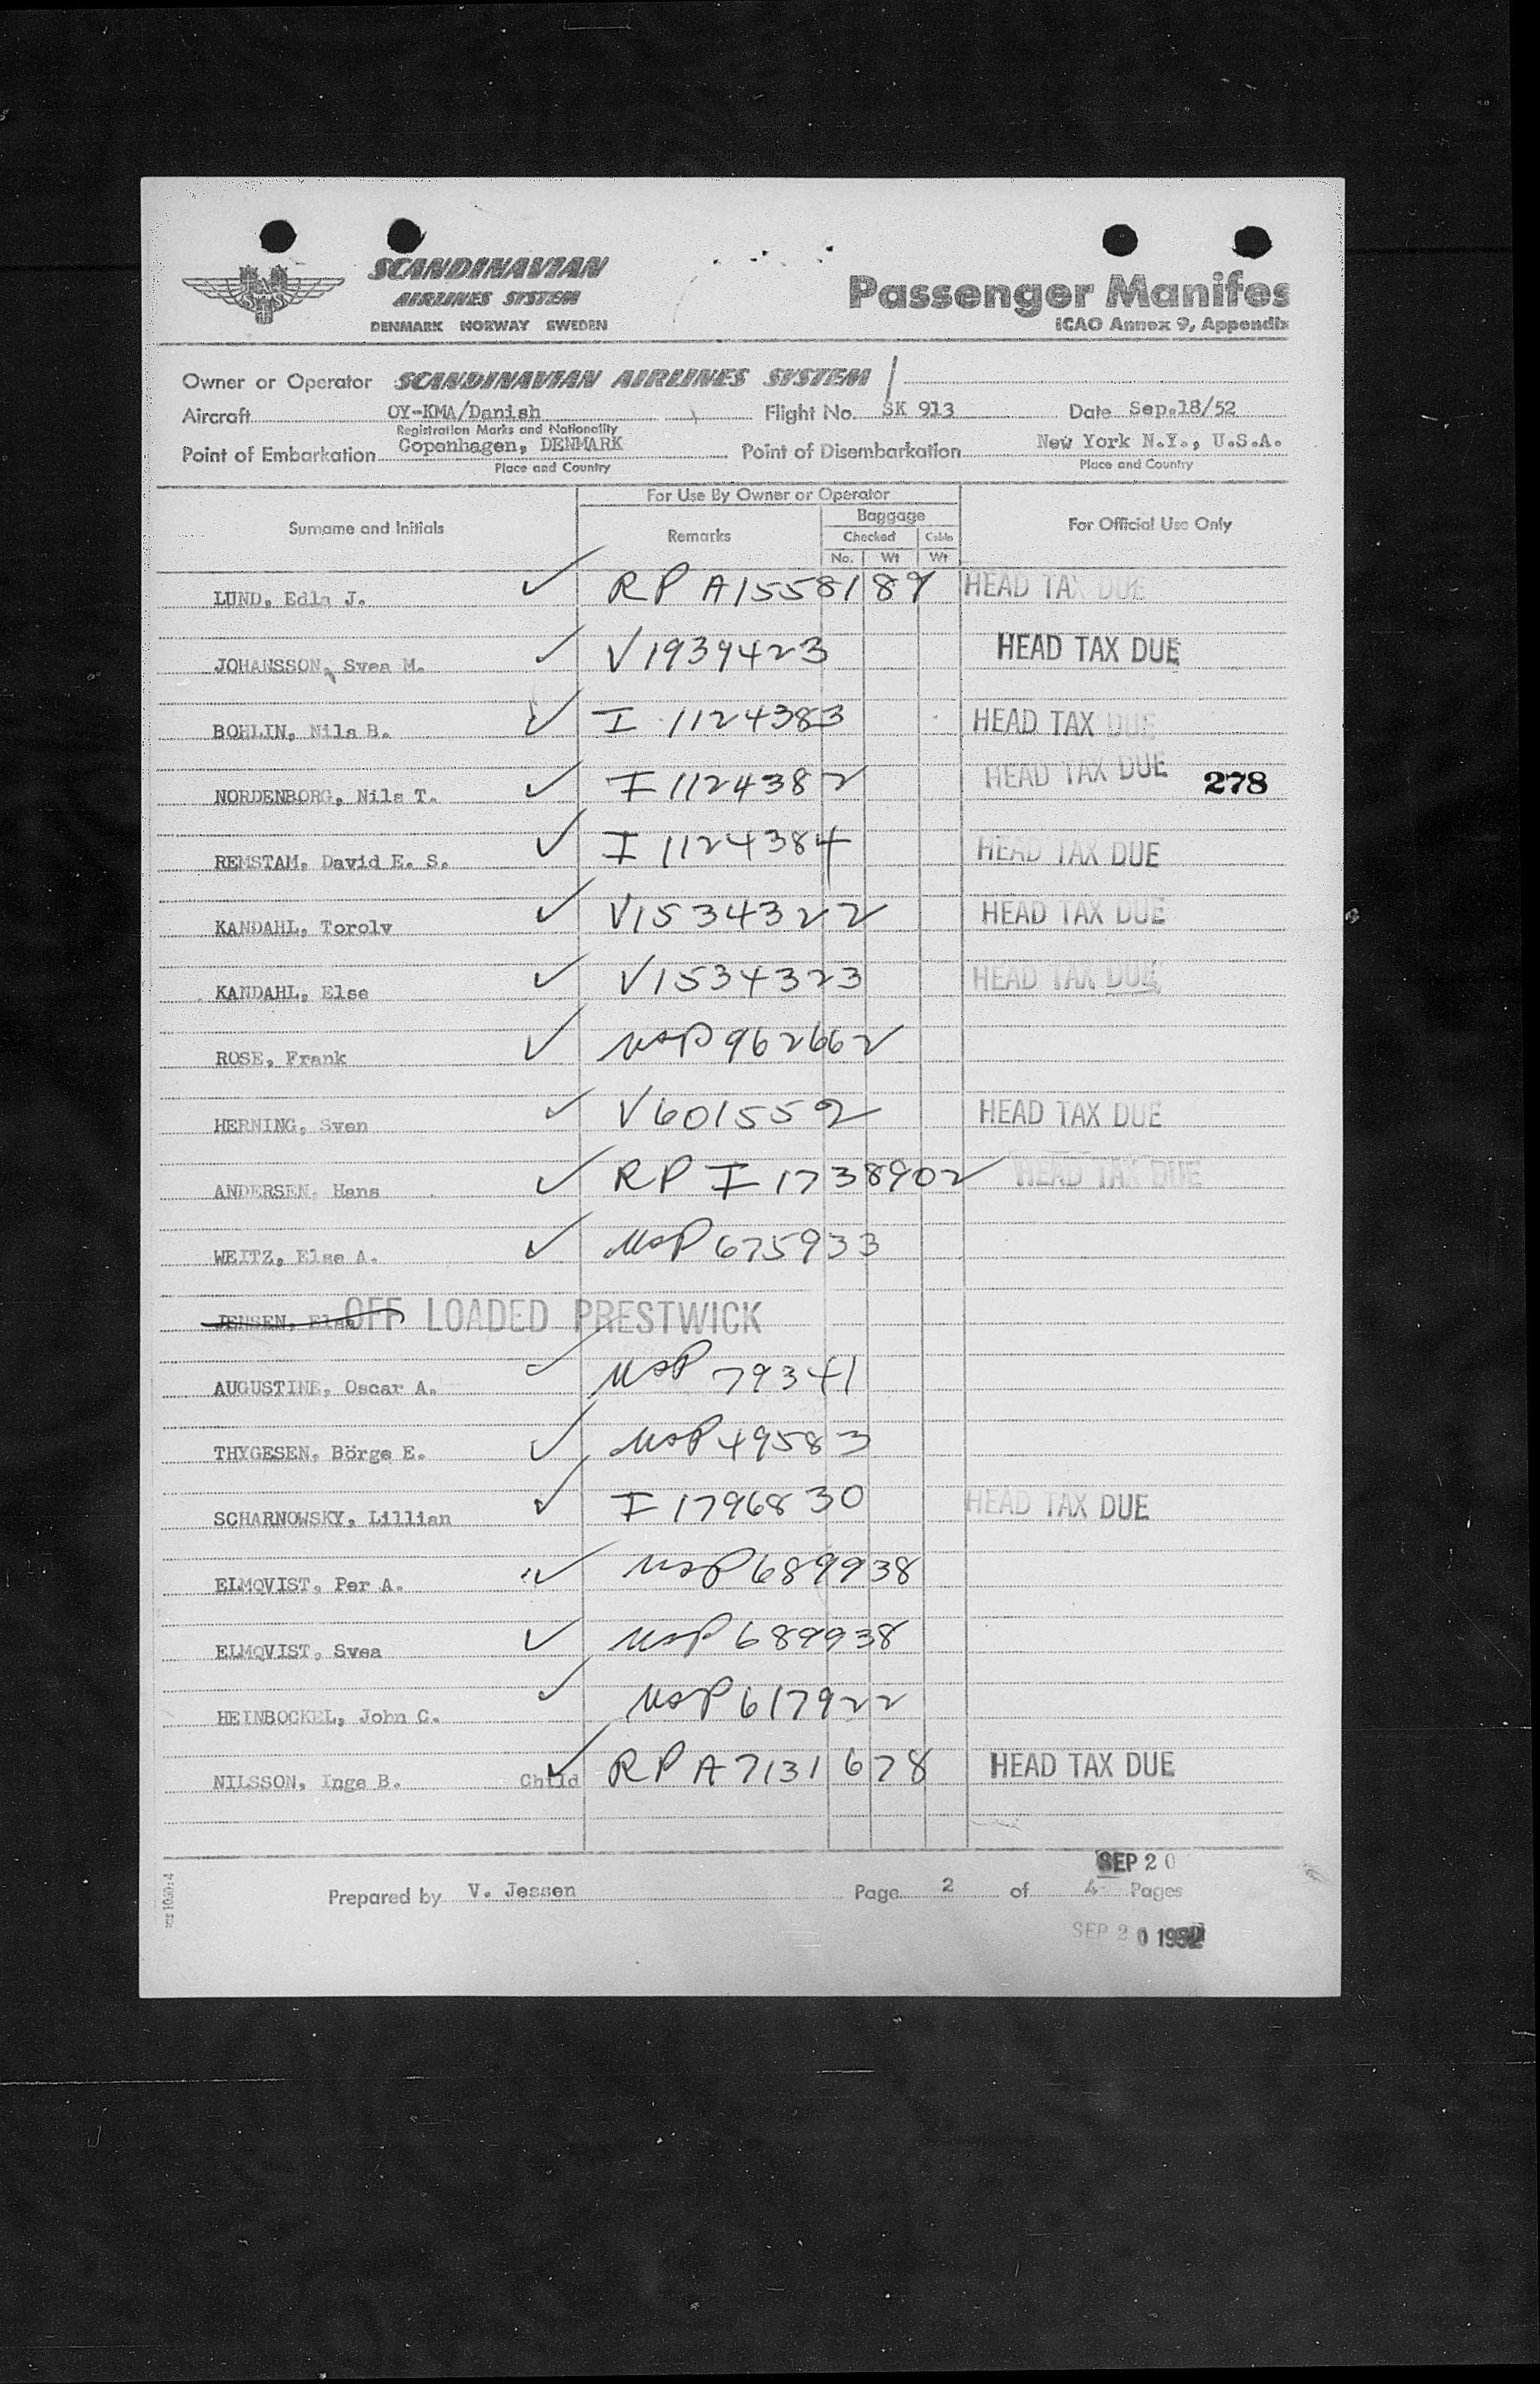 SCANDINAVIAN
AIRLINES SYSTEM
DENMARK NORWAY SWEDEN
Passenger Manifes
ICAO Annex 9, Appendix
Owner or Operator SCANDINAVIAN AIRLINES SYSTEM
Aircraft OY-KMA/Danish Flight No. SK 913 Date Sep.18/52
Registration Marks and Nationality
Point of Embarkation Copenhagen, DENMARK Point of Disembarkation New York N.Y., U.S.A.
Place and Country Place and Country
For Use By Owner or Operator
Surname and Initials Remarks Baggage For Official Use Only
Checked Cabin
No. Wt Wt
LUND, Edla J. ✓ RP A1558189 HEAD TAX DUE
JOHANSSON, Svea M. ✓ V1939423 HEAD TAX DUE
BOHLIN, Nils B. ✓ I 1124383 HEAD TAX DUE
NORDENBORG, Nils T. ✓ I 1124382 HEAD TAX DUE 278
REMSTAM, David E. S. ✓ I 1124384 HEAD TAX DUE
KANDAHL, Torolv ✓ V1534322 HEAD TAX DUE
KANDAHL, Else ✓ V1534323 HEAD TAX DUE
ROSE, Frank ✓ USP 962662
HERNING, Sven ✓ V601552 HEAD TAX DUE
ANDERSEN, Hans ✓ RP I 1738902 HEAD TAX DUE
WEITZ, Else A. ✓ USP 675933
JENSEN, OFF LOADED PRESTWICK
AUGUSTINE, Oscar A. ✓ USP 79341
THYGESEN, Börge E. ✓ USP 49583
SCHARNOWSKY, Lillian ✓ I 1796830 HEAD TAX DUE
ELMQVIST, Per A. ✓ USP 689938
ELMQVIST, Svea ✓ USP 689938
HEINBOCKEL, John C. ✓ USP 617922
NILSSON, Inge B. Child ✓ RP A7131678 HEAD TAX DUE
SEP 20
Prepared by V. Jessen Page 2 of 4 Pages
SEP 20 1952